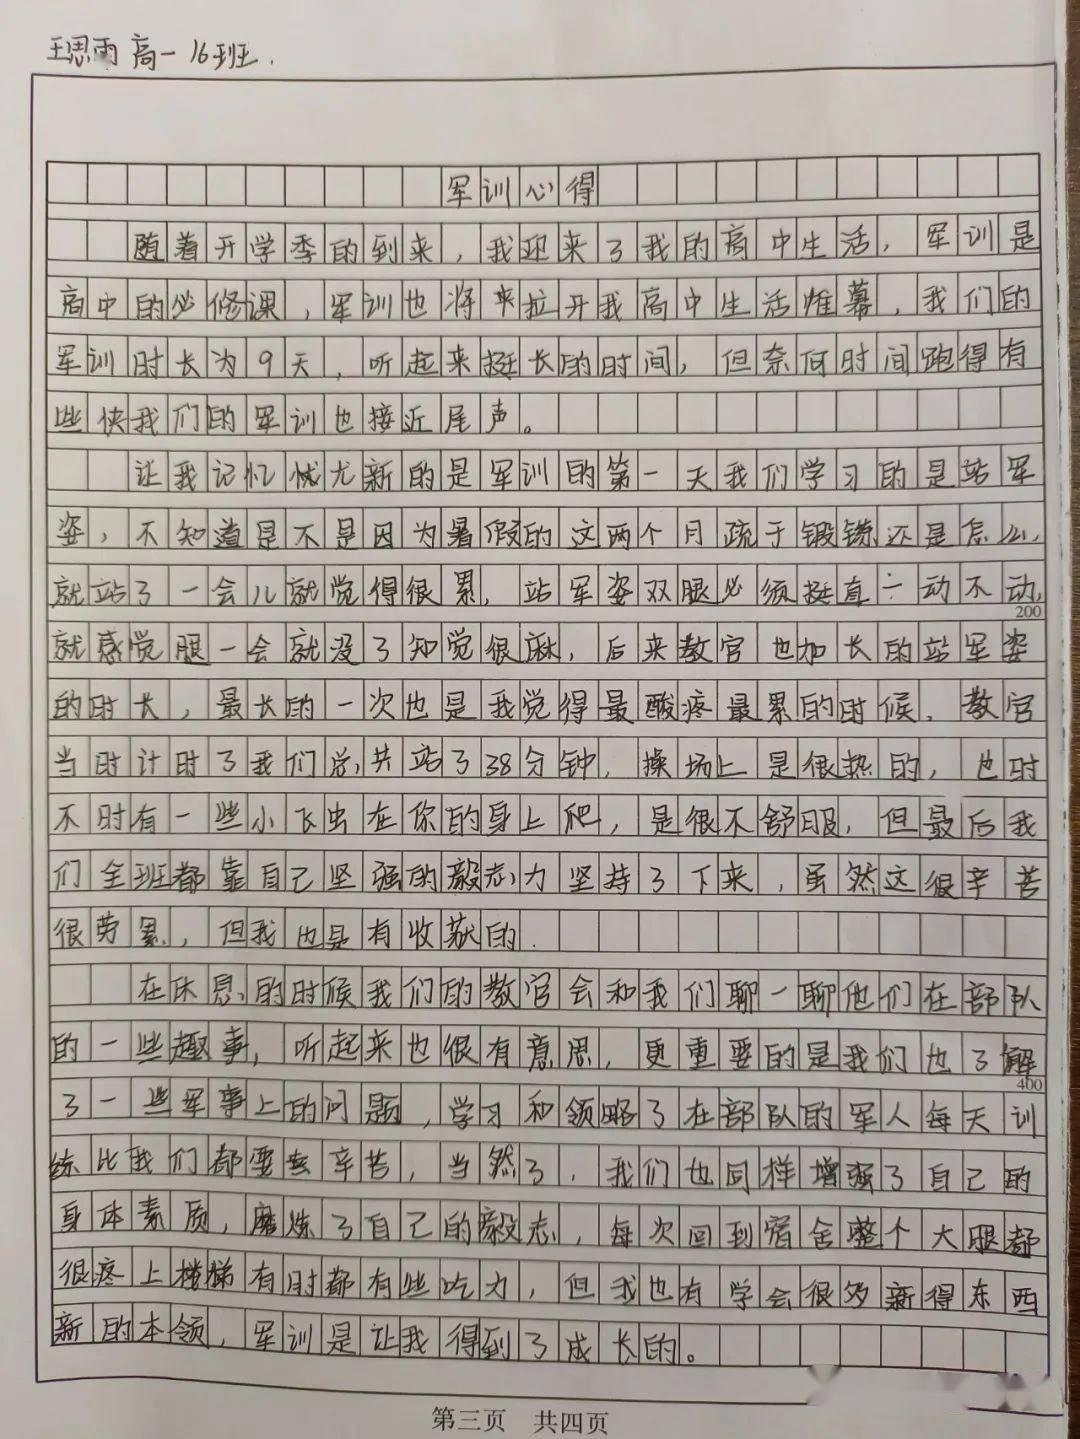 王思雨 高一 16班.
军训心得
随着开学季的到来，我迎来了我的高中生活，军训是
高中的必修课，军训也将来拉开我高中生活帷幕，我们的
军训时长为9天，听起来挺长的时间，但奈何时间跑得有
些快我们的军训也接近尾声。
让我记忆忧尤新的是军训的第一天我们学习的是站军
姿，不知道是不是因为暑假的这两个月疏于锻练还是怎么，
就站了一会儿就觉得很累，站军姿双腿必须挺直一动不动，
200
就感觉腿一会就没了知觉很麻，后来教官也加长的站军姿
的时长，最长的一次也是我觉得最酸疼最累的时候，教官
当时计时了我们总共站了38分钟，操场上是很热的，也时
不时有一些小飞虫在你的身上爬，是很不舒服，但最后我
们全班都靠自己坚强的毅志力坚持了下来，虽然这很辛苦
很劳累，但我也是有收获的.
在休息的时候我们的教官会和我们聊一聊他们在部队
的一些趣事，听起来也很有意思，更重要的是我们也了解
400
了一些军事上的问题，学习和领略了在部队的军人每天训
练比我们都要辛苦，当然了，我们也同样增强了自己的
身体素质，磨炼了自己的毅志，每次回到宿舍整个大腿都
很疼上楼梯有时都有些吃力，但我也有学会很多新得东西
新的本领，军训是让我得到了成长的。
第三页 共四页